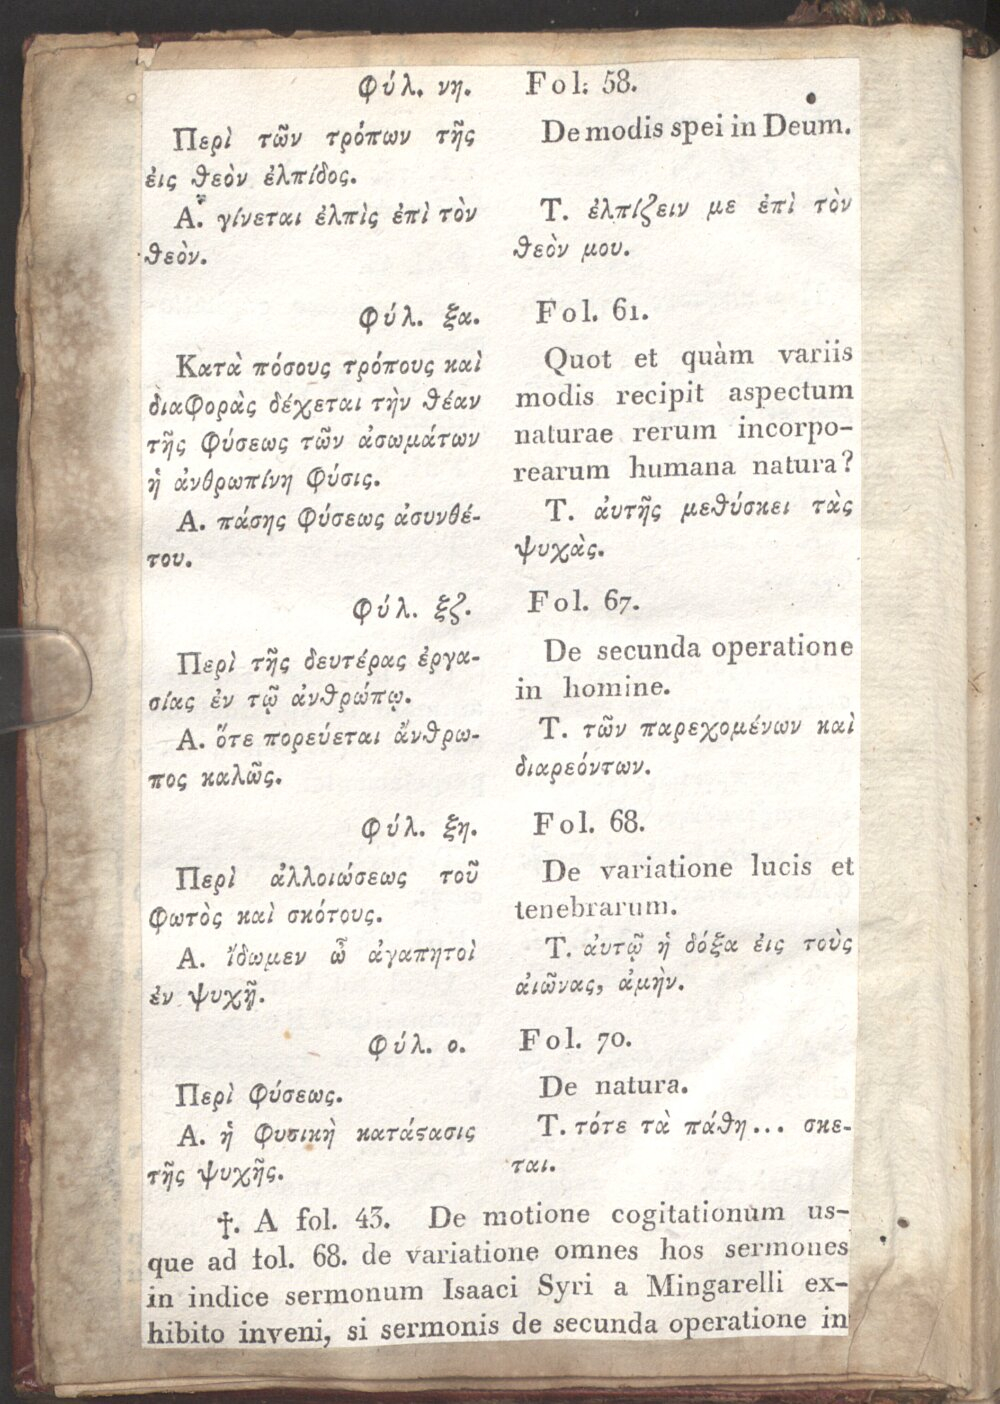 Φύλ. νη.
Περὶ τῶν τρόπων τῆς
ἐις θεὸν ἐλπίδος.
Α. γίνεται ἐλπὶς ἐπὶ τὸν
θεὸν.
Fol. 58.
De modis spei in Deum.
Τ. ἐλπίζειν με ἐπὶ τὸν
θεὸν μου.
Φύλ. ξα.
Κατὰ πόσους τρόπους καὶ
διαφορὰς δέχεται τὴν θέαν
τῆς φύσεως τῶν ἀσωμάτων
ἡ ἀνθρωπίνη φύσις.
Α. πάσης φύσεως ἀσυνθέ-
του.
Fol. 61.
Quot et quàm variis
modis recipit aspectum
naturae rerum incorpo-
rearum humana natura?
Τ. ἀυτῆς μεθύσκει τὰς
ψυχὰς.
Φύλ. ξζ.
Περὶ τῆς δευτέρας ἐργα-
σίας ἐν τῷ ἀνθρώπῳ.
Α. ὅτε πορεύεται ἄνθρω-
πος καλῶς.
Fol. 67.
De secunda operatione
in homine.
Τ. τῶν παρεχομένων καὶ
διαρεόντων.
Φύλ. ξη.
Περὶ ἀλλοιώσεως τοῦ
φωτὸς καὶ σκότους.
Α. ἴδωμεν ὦ ἀγαπητοὶ
ἐν ψυχῇ.
Fol. 68.
De variatione lucis et
tenebrarum.
Τ. ἀυτῷ ἡ δόξα ἐις τοὺς
ἀιῶνας, ἀμὴν.
Φύλ. ο.
Περὶ φύσεως.
Α. ἡ φυσικὴ κατάϛασις
τῆς ψυχῆς.
Fol. 70.
De natura.
Τ. τότε τὰ πάθη... σκε-
ται.
†. A fol. 43. De motione cogitationum us-
que ad fol. 68. de variatione omnes hos sermones
in indice sermonum Isaaci Syri a Mingarelli ex-
hibito inveni, si sermonis de secunda operatione in